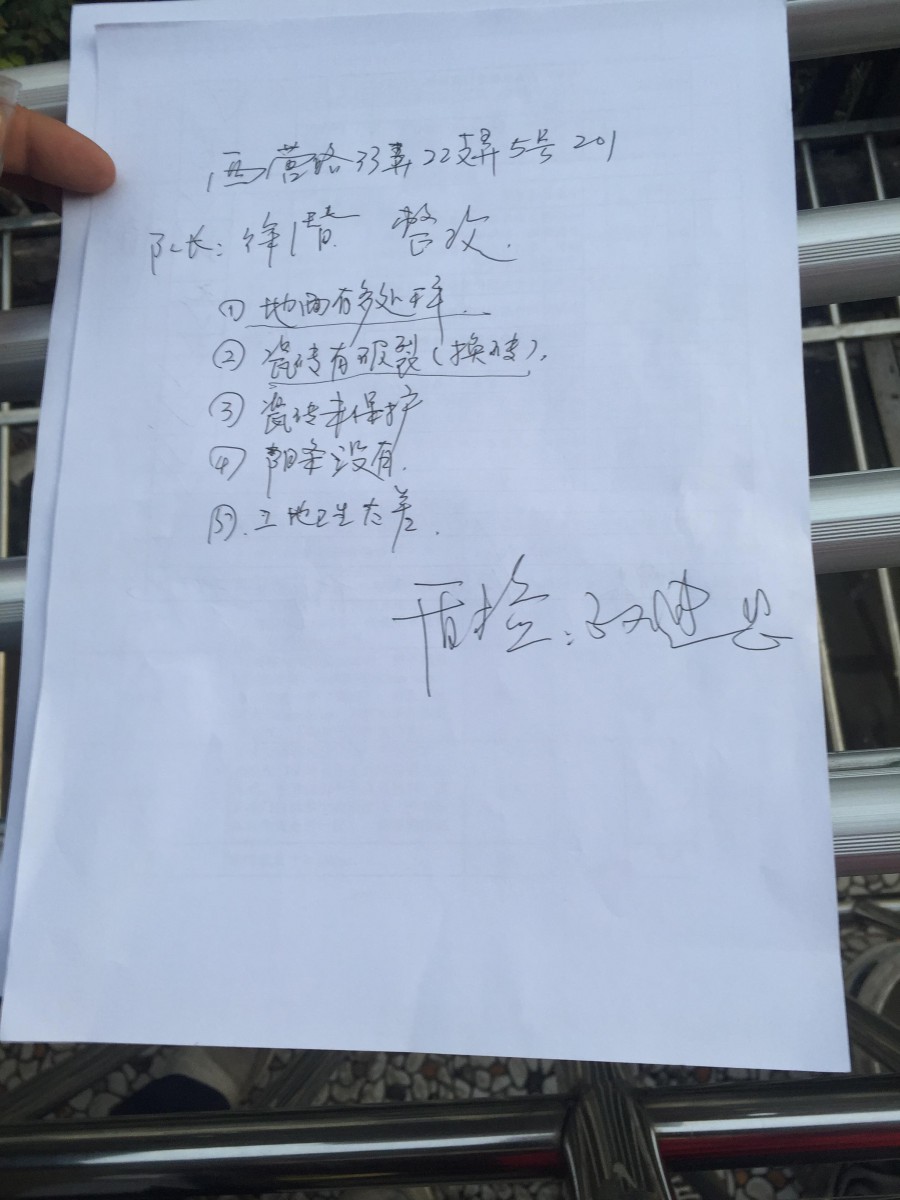 西营路33弄22支弄5号201
队长:徐 整改.
① 地面有多处不平.
② 瓷砖有破裂(换砖).
③ 瓷砖未保护
④ 阳条没有.
⑤.工地卫生太差.
质检: